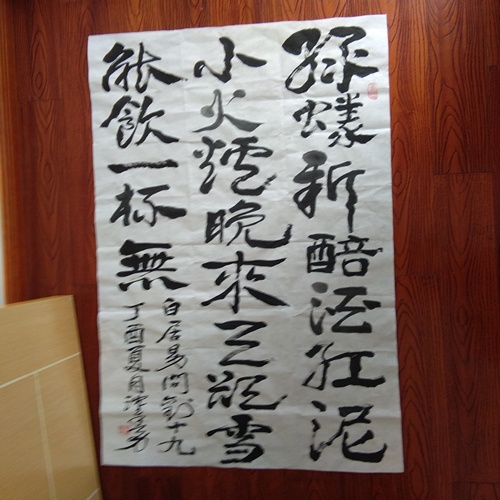 綠蟻新醅酒紅泥
小火爐晚來天欲雪
能飲一杯無
白居易問劉十九
丁酉夏月